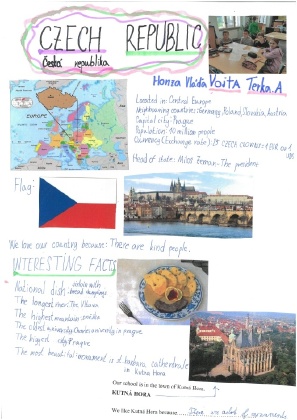 CZECH REPUBLIC
Česká republika
Honza Vláďa VOJTA Terka.A
Located in: Central Europe
Neighbouring countries: Germany, Poland, Slovakia, Austria
Capital city: Prague
Population: 10 million people
Currency (Exchange rate): 25 CZECH CROWNS = 1 EUR
Head of state: Milos Zeman - The president
EUROPE
Flag:
We love our country because: There are kind people.
INTERESTING FACTS
National dish - sirloin with
bread dumplings
The longest river: The Vltava
The highest mountain: sněžka
The oldest university: Charles university in prague
The biggest city: Prague
The most beautiful monument is st. barbara, cathedrale
in Kutna Hora
Our school is in the town of Kutná Hora.
KUTNÁ HORA
We like Kutná Hora because: There are a lot of